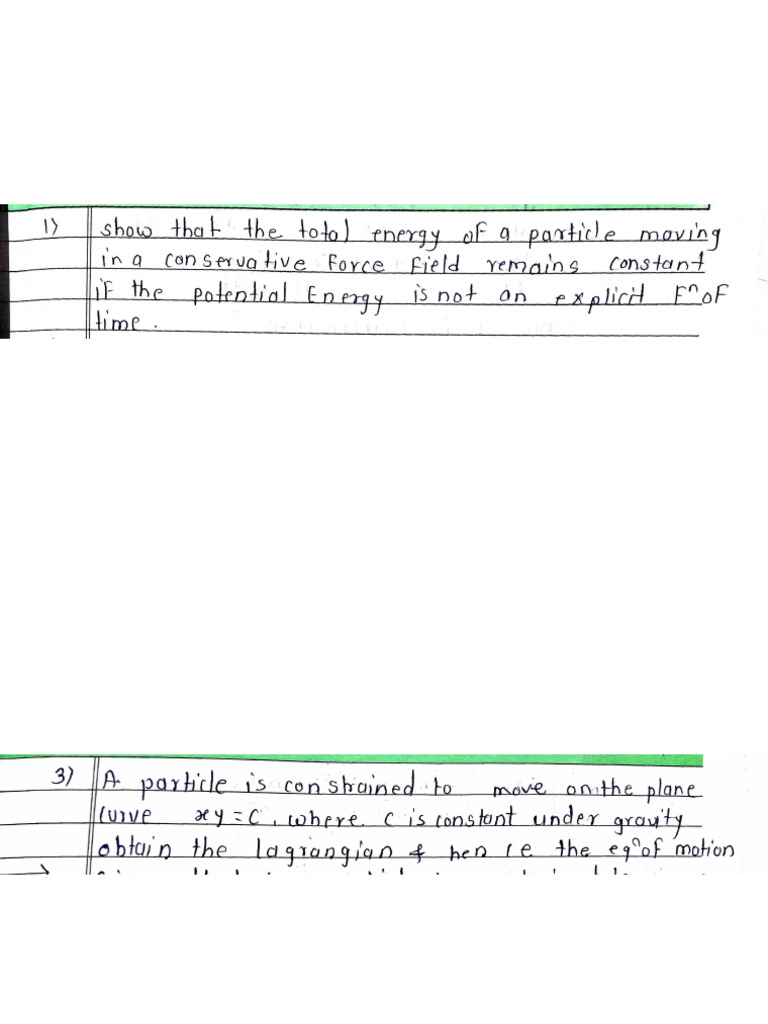 1) show that the total energy of a particle moving
in a conservative force field remains constant
if the potential Energy is not an explicit Fⁿ of
time.
3) A particle is constrained to move on the plane
curve xy = C, where C is constant under gravity
obtain the lagrangian & hence the eqⁿ of motion